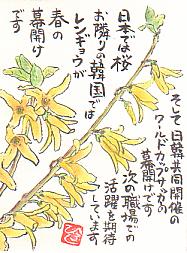 日本では桜
お隣りの韓国では
レンギョウが
春の
幕開け
です
そして日韓共同開催の
ワールドカップサッカーの
幕開けです
次の職場での
活躍を期待
しています